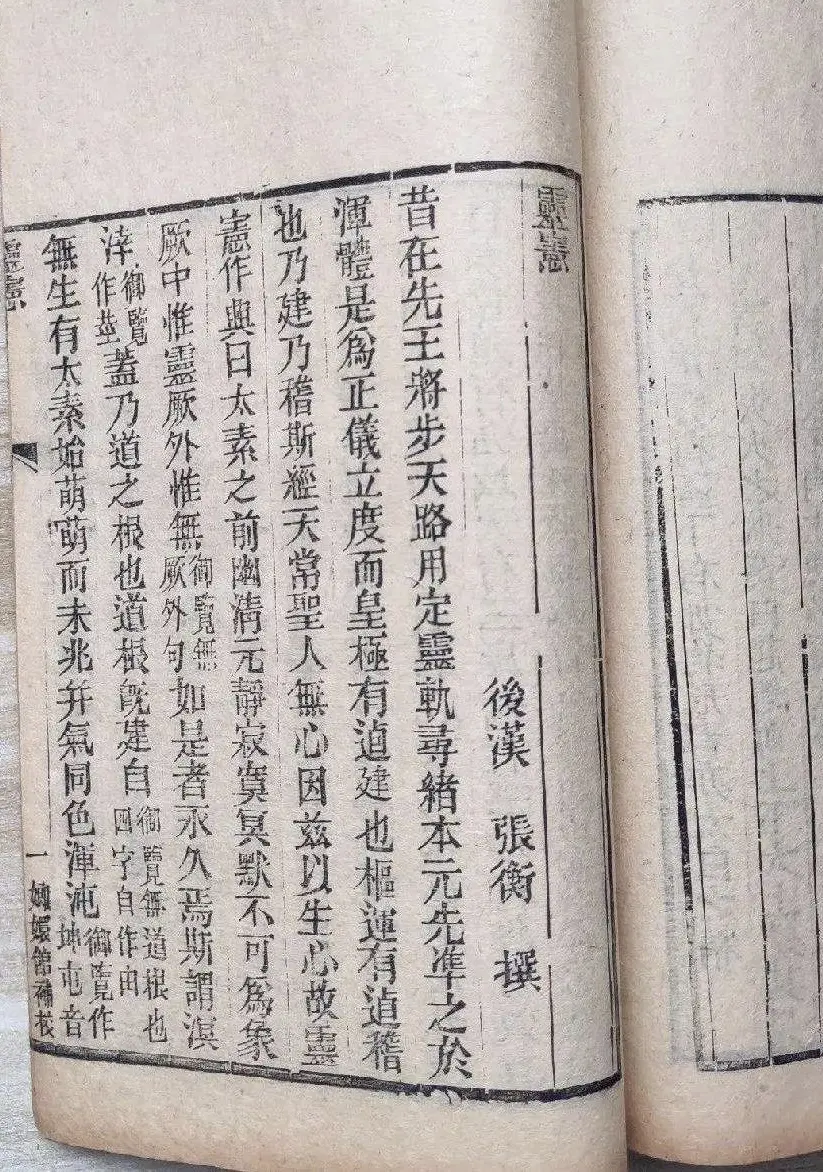 靈憲
後漢 張衡 撰
昔在先王將步天路用定靈軌尋緒本元先準之於
渾體是爲正儀立度而皇極有逌建也樞運有逌稽
也乃建乃稽斯經天常聖人無心因兹以生心故靈
憲作興曰太素之前幽淸元靜寂寞冥默不可爲象
厥中惟靈厥外惟無御覽無厥外句如是者永久焉斯謂溟
涬御覽作莖蓋乃道之根也道根旣建自御覽無道根也四字自作由
無生有太素始萌萌而未兆并氣同色渾沌御覽作坤屯音
靈憲 一 嫏嬛館補校